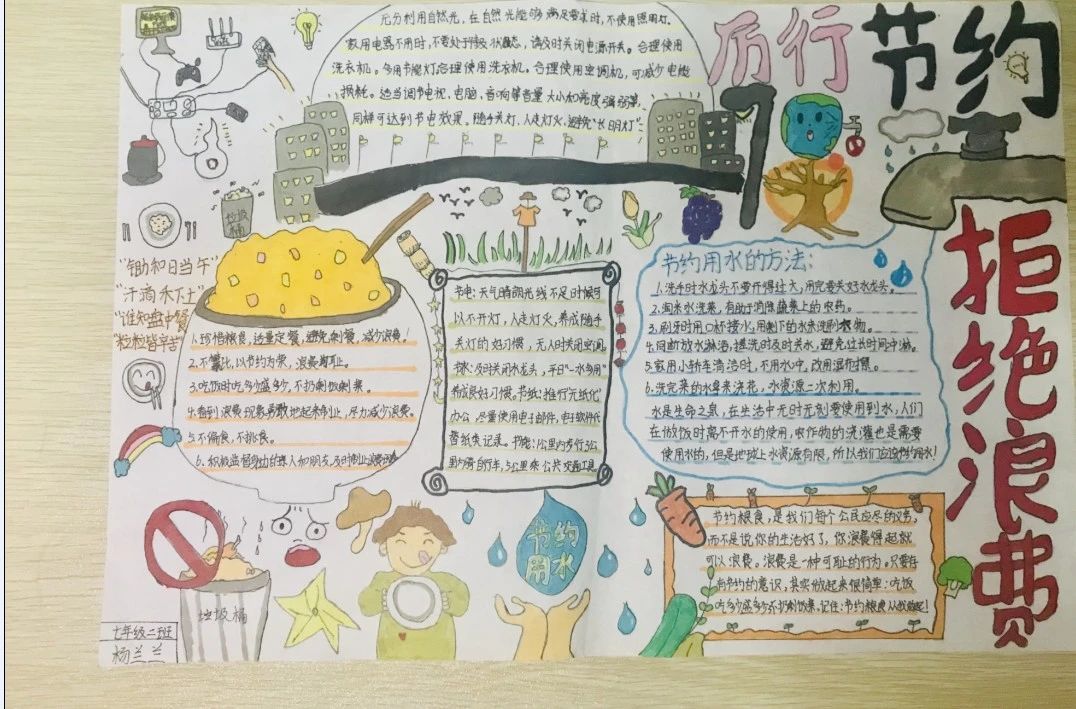 厉行节约
拒绝浪费
充分利用自然光，在自然光能够满足要求时，不使用照明灯。
家用电器不用时，不要处于待机状态，请及时关闭电源开关。合理使用
洗衣机。多用节能灯合理使用洗衣机。合理使用空调机，可减少电能
损耗。适当调节电视、电脑、音响等音量大小和亮度强弱等，
同样可达到节电效果。随手关灯，人走灯灭，避免"长明灯"
垃圾桶
"锄禾日当午"
"汗滴禾下土"
"谁知盘中餐
"粒粒皆辛苦"
1.珍惜粮食，适量定餐，避免剩餐，减少浪费！
2.不攀比，以节约为荣，浪费为耻。
3.吃饭时吃多少盛多少，不扔剩饭剩菜。
4.看到浪费现象勇敢地起来制止，尽力减少浪费。
5.不偏食，不挑食。
6.积极监督身边的家人和朋友，及时制止浪费
节电：天气晴朗光线不足时候可
以不开灯，人走灯灭，养成随手
关灯的好习惯，无人时关闭空调
：及时关闭水龙头，平日"一水多用"
养成良好习惯。节纸：推行"无纸化"
办公，尽量使用电子邮件，电子软件代
替纸类记录。节能：1公里内步行，3公
里内骑自行车，5公里乘公共交通工具
节约用水的方法：
1.洗手时水龙头不要开得过大，用完要关好水龙头。
2.淘米水洗菜，有助于消除蔬菜上的农药。
3.刷牙时用口杯接水，用剩下的水来洗刷衣物。
4.间断放水淋浴，搓洗时及时关水，避免过长时间冲淋。
5.家用小轿车清洁时，不用水冲，改用湿布擦。
6.洗完菜的水拿来浇花，水资源二次利用。
水是生命之泉，在生活中无时无刻要使用到水，人们
在做饭时离不开水的使用，农作物的浇灌也是需要
使用水的，但是地球上水资源有限，所以我们应该节约用水！
节约粮食，是我们每个公民应尽的义务，
而不是说你的生活好了，你浪费得起就
可以浪费。浪费是一种可耻的行为。只要存
有节约的意识，其实做起来很简单：吃饭
吃多少盛多少不扔剩饭菜。记住：节约粮食从我做起！
节约
用水
垃圾桶
七年级二班
杨兰兰